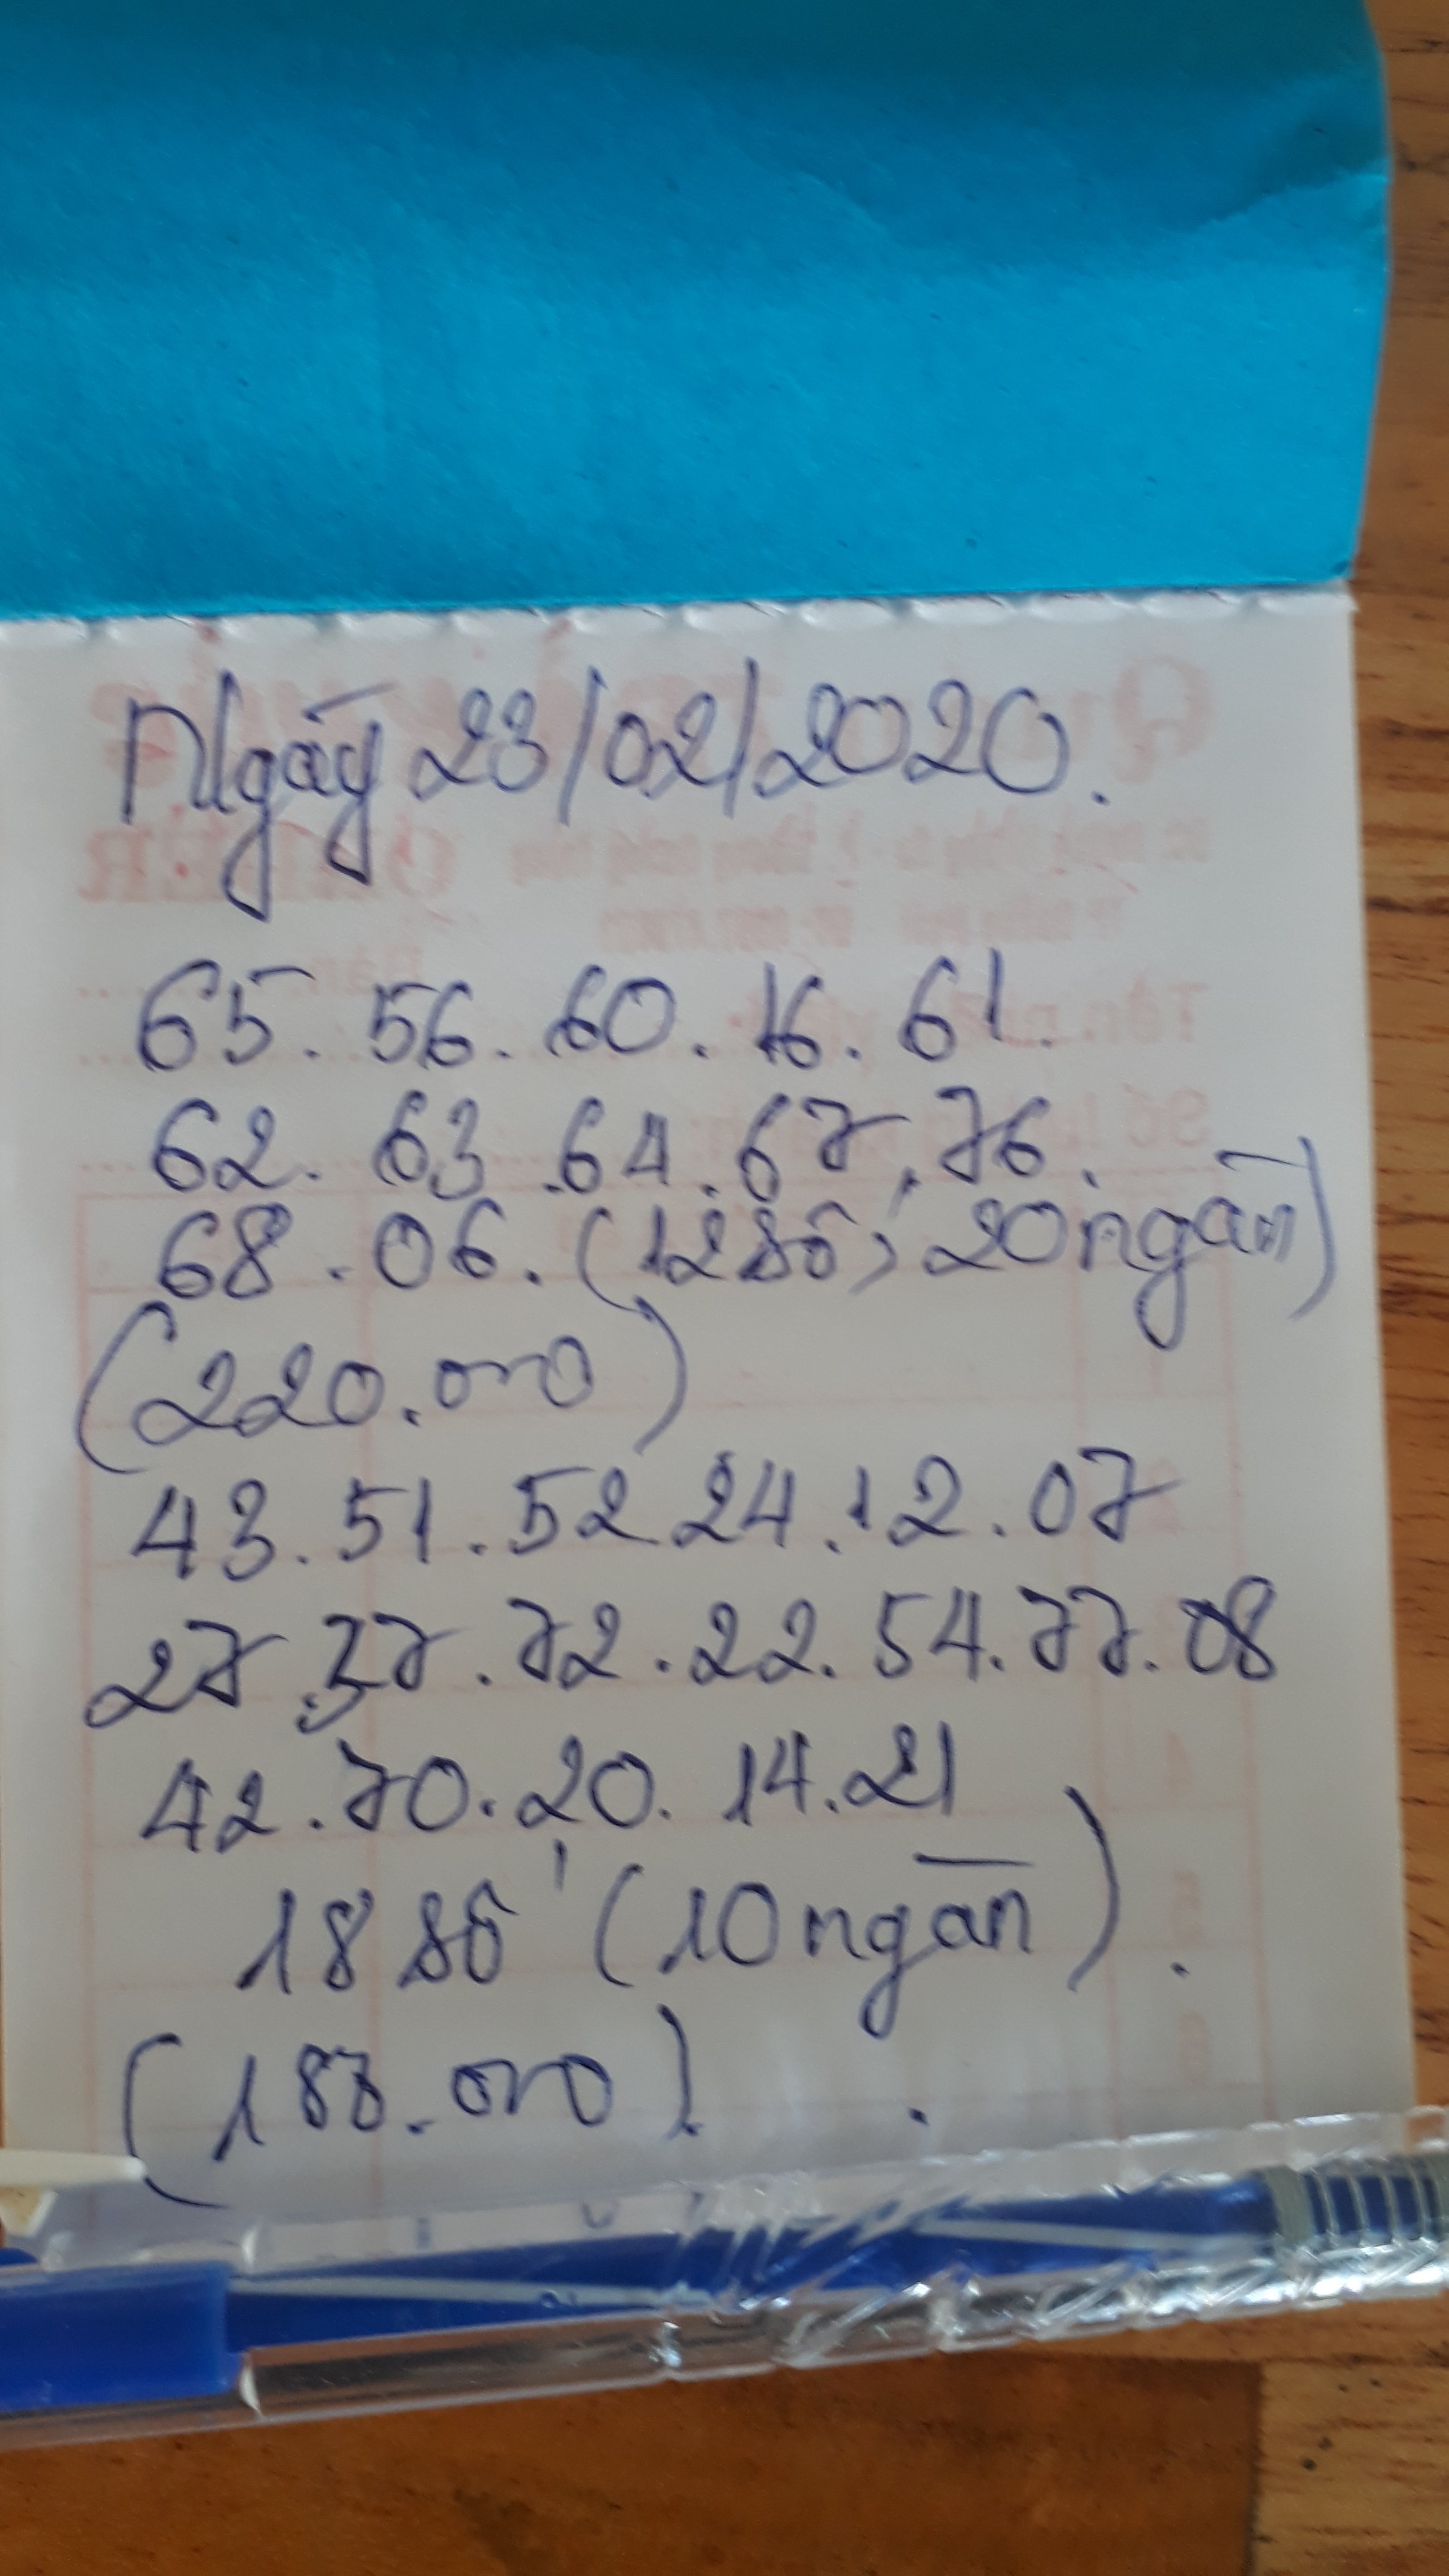 Ngày 23/02/2020.
65. 56. 60. 16. 61.
62. 63. 64. 67, 76.
68. 06. (12 số; 20 ngàn)
(220.000)
43. 51. 52 24. 12. 07
27. 37. 72. 22. 54. 77. 08
42. 70. 20. 14. 21
18 số (10 ngàn).
(188.000).